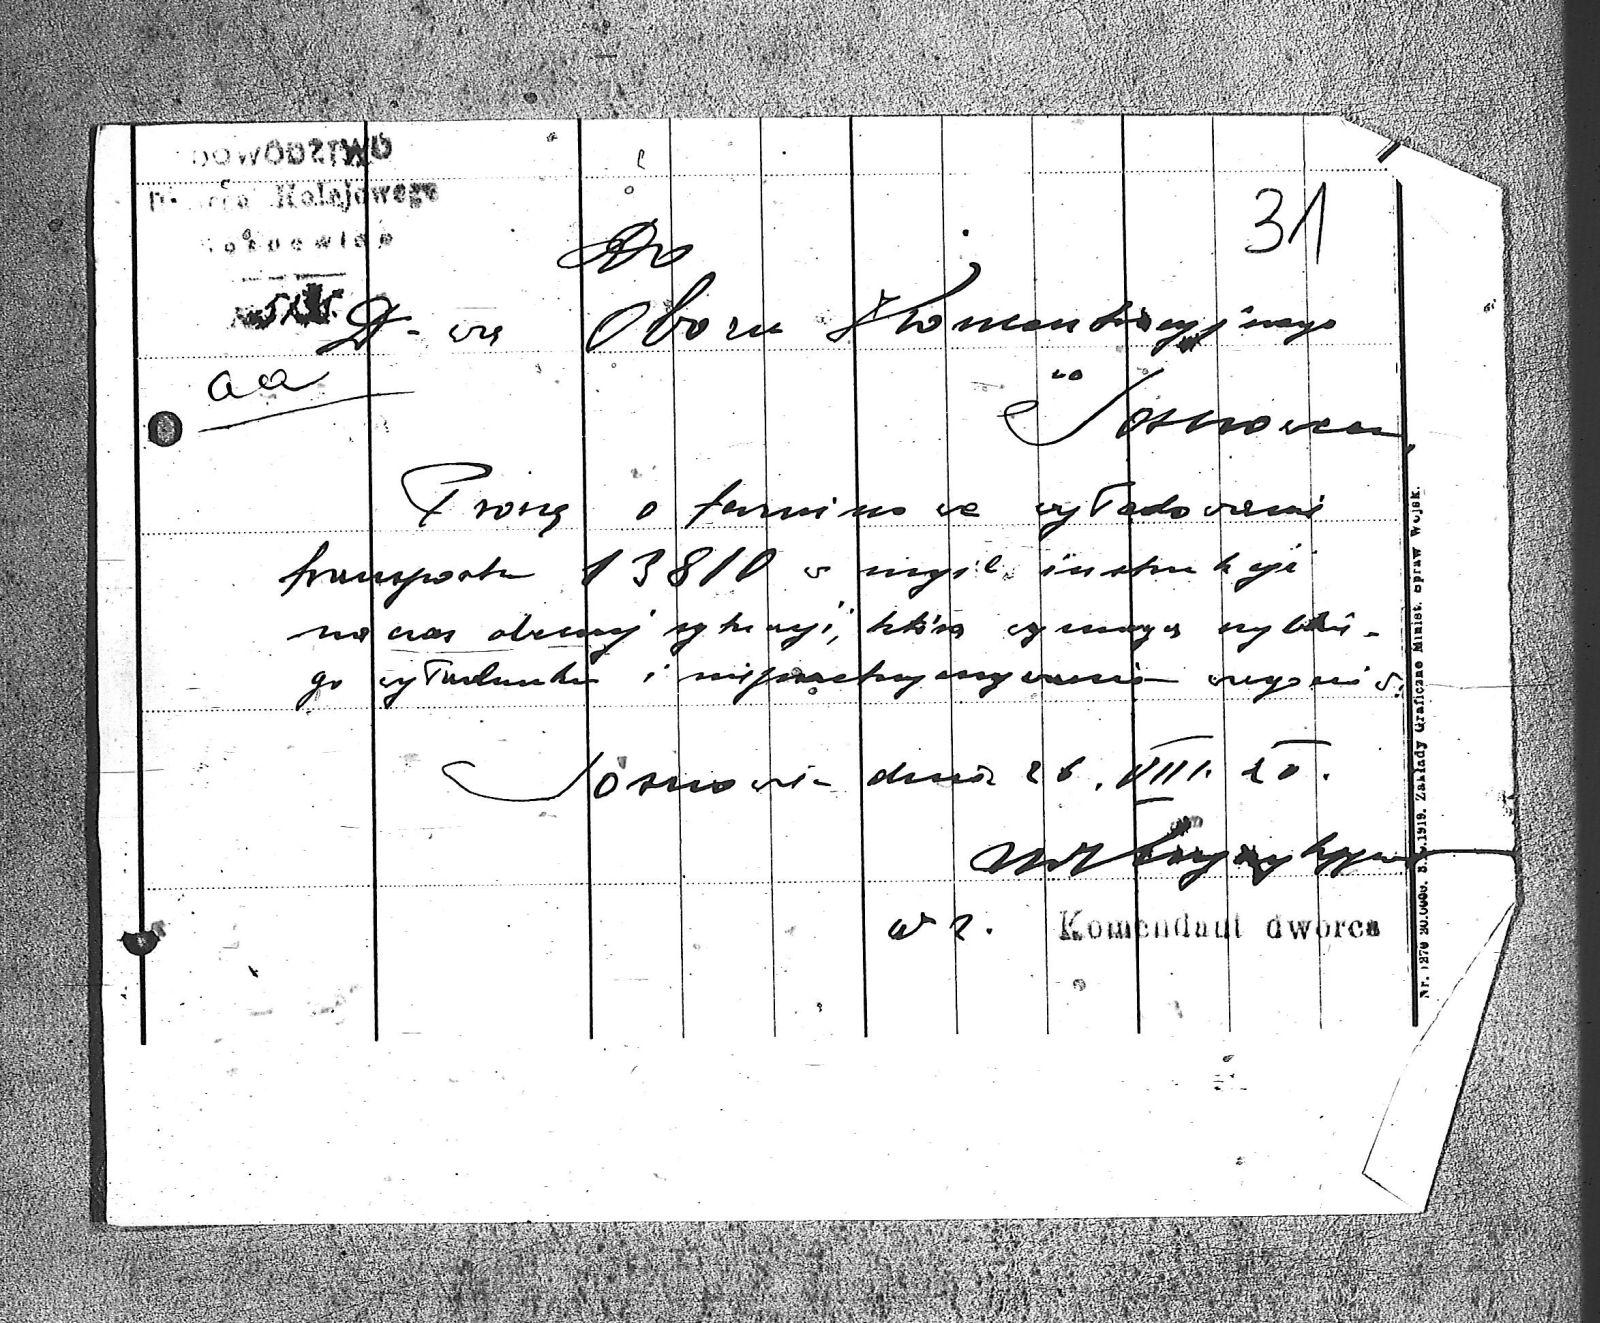 DOWÓDZTWO
Kolejowego
31
Do
D-wa Obozu Kondentracyjnego
w
Sosnowcu,
aa
Proszę o terminowe wyładowanie
transportu 13810 w myśl instrukcji
na czas obecnej sytuacji, która wymaga szybkie-
go wyładunku i nieprzetrzymywania wagonów.
Sosnowiec dnia 26. VIII. 20.
w z. Komendant dworca
Nr. 1270 20.0000. 1919. Zakłady Graficzne Minist. Spraw Wojsk.